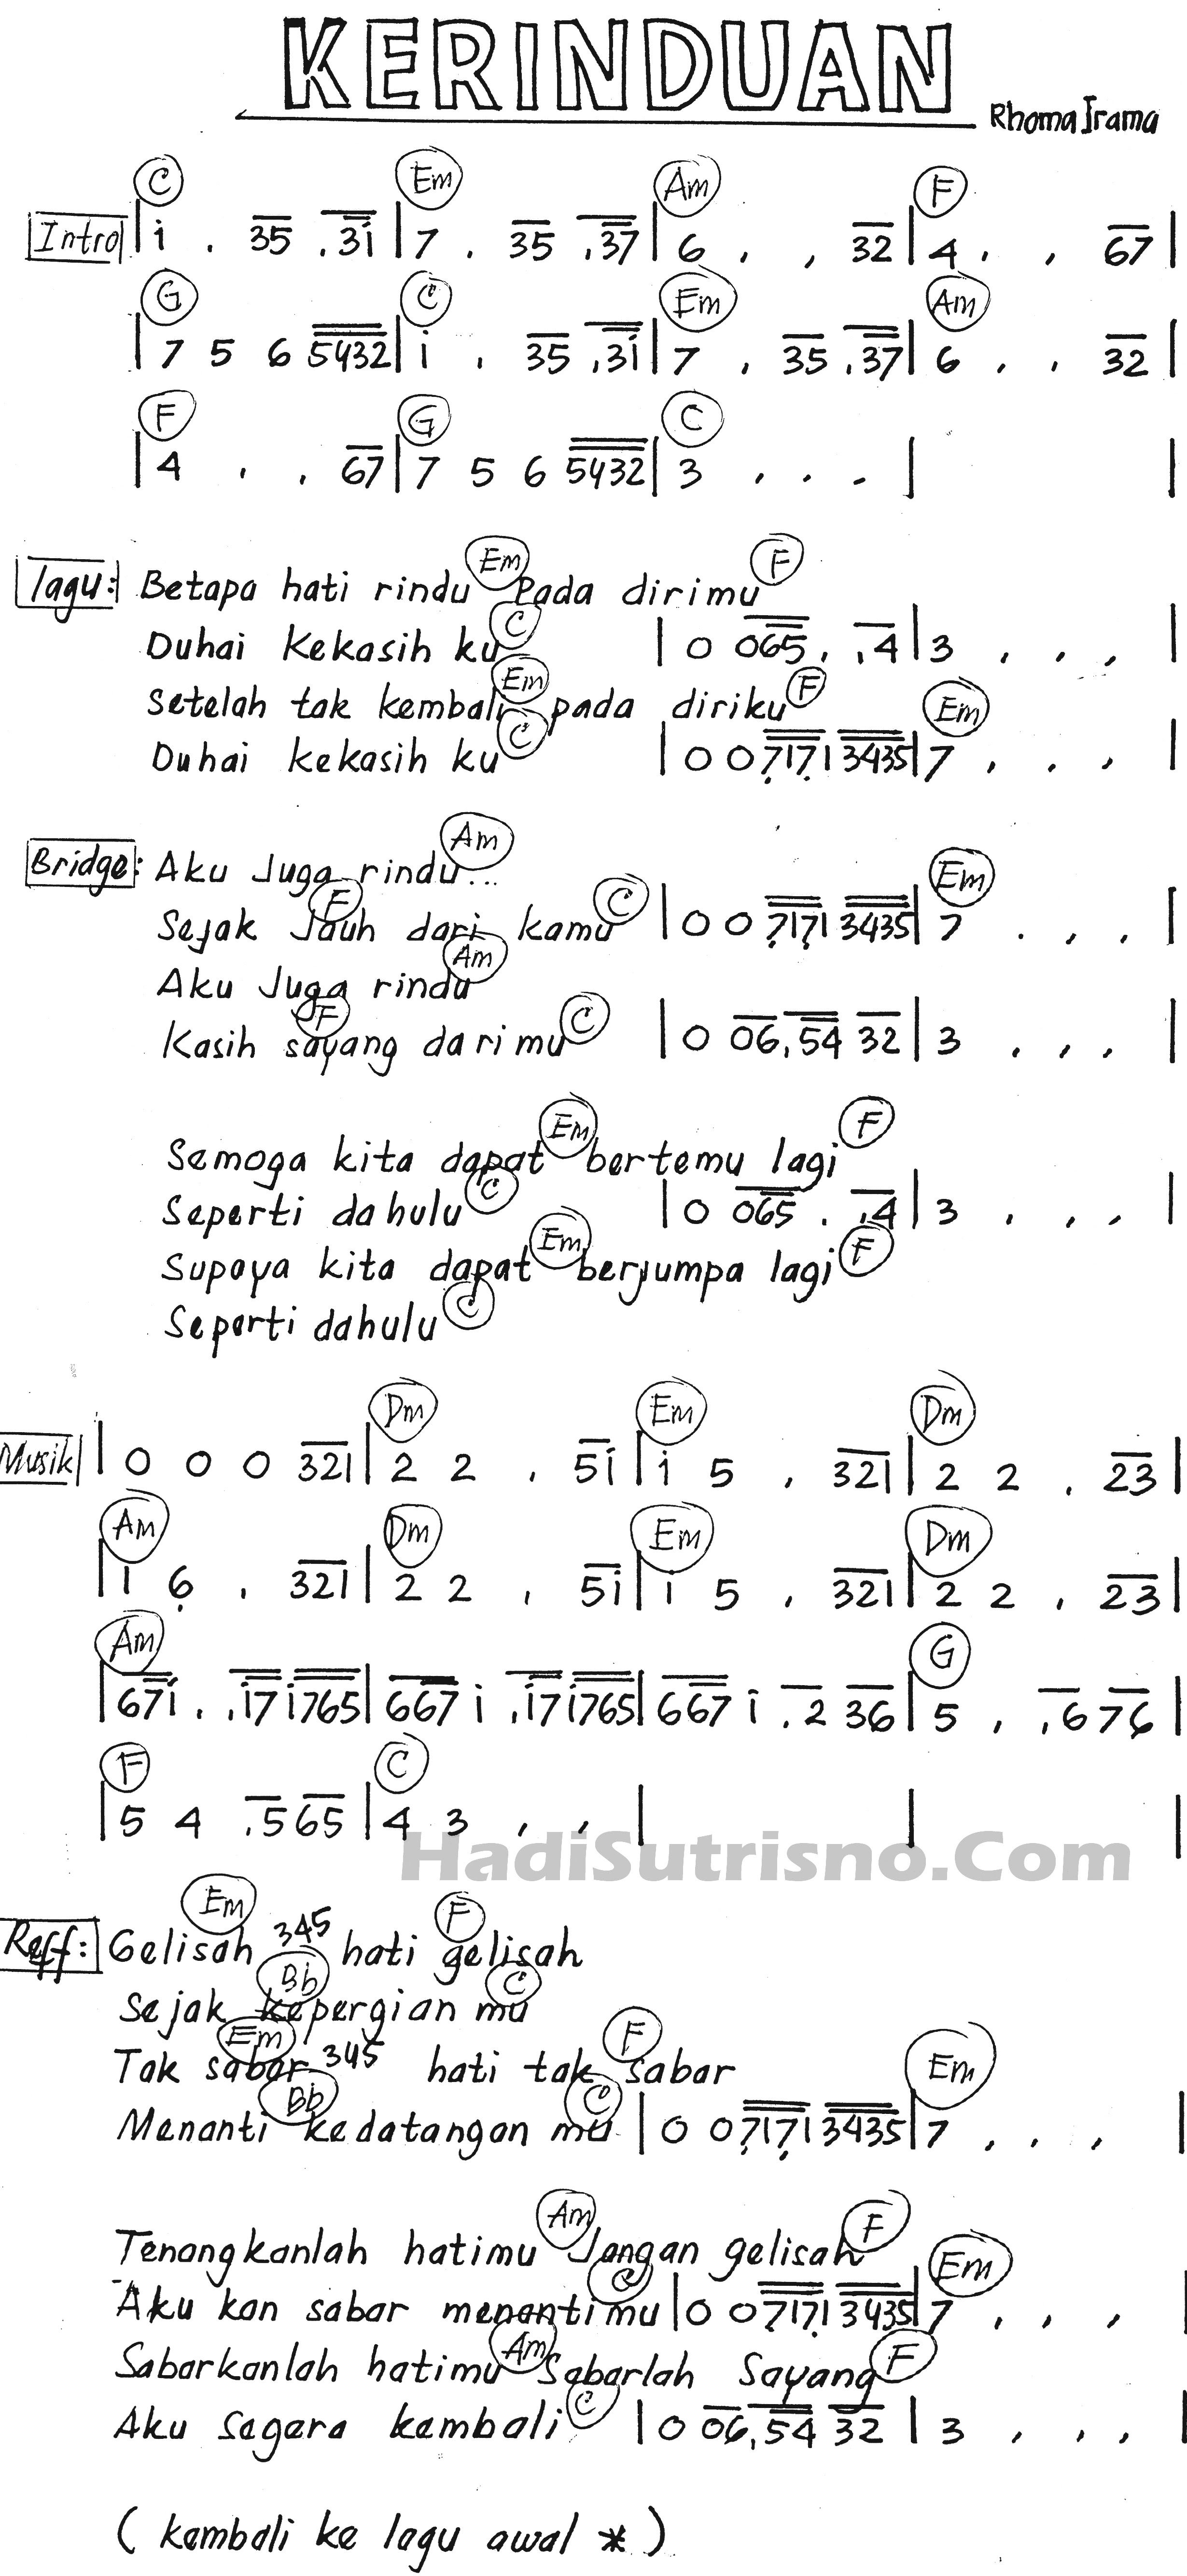 KERINDUAN
Rhoma Irama
C Em Am F
Intro | i . 35 .3i | 7 . 35 .37 | 6 . . 32 | 4 . . 67 |
G C Em Am
| 7 5 6 5432 | i . 35 .3i | 7 . 35 .37 | 6 . . 32 |
F G C
| 4 . . 67 | 7 5 6 5432 | 3 . . . | |
Em F
lagu: Betapa hati rindu Pada dirimu
C
Duhai kekasih ku | 0 065 . .4 | 3 . . . |
Em F
Setelah tak kembali pada diriku
C Em
Duhai kekasih ku | 0 0 7171 3435 | 7 . . . |
Am
Bridge: Aku Juga rindu...
F C Em
Sejak Jauh dari kamu | 0 0 7171 3435 | 7 . . . |
Am
Aku Juga rindu
F C
Kasih sayang darimu | 0 06 .54 32 | 3 . . . |
Em F
Semoga kita dapat bertemu lagi
C
Seperti dahulu | 0 065 . .4 | 3 . . . |
Em F
Supaya kita dapat berjumpa lagi
C
Seperti dahulu
Dm Em Dm
Musik | 0 0 0 321 | 2 2 . 5i | i 5 . 321 | 2 2 . 23 |
Am Dm Em Dm
| 1 6 . 321 | 2 2 . 5i | i 5 . 321 | 2 2 . 23 |
Am G
| 67i . .i7 i765 | 667 i .i7 i765 | 667 i .2 36 | 5 . .6 76 |
F C
| 5 4 .5 65 | 4 3 . . | | |
HadiSutrisno.Com
Em F
Reff: Gelisah 345 hati gelisah
Bb C
Sejak kepergian mu
Em F
Tak sabar 345 hati tak sabar
Bb C Em
Menanti kedatangan mu | 0 0 7171 3435 | 7 . . . |
Am F
Tenangkanlah hatimu Jangan gelisah
C Em
Aku kan sabar menantimu | 0 0 7171 3435 | 7 . . . |
Am F
Sabarkanlah hatimu Sabarlah Sayang
C
Aku segera kembali | 0 06 .54 32 | 3 . . . |
( kembali ke lagu awal * )